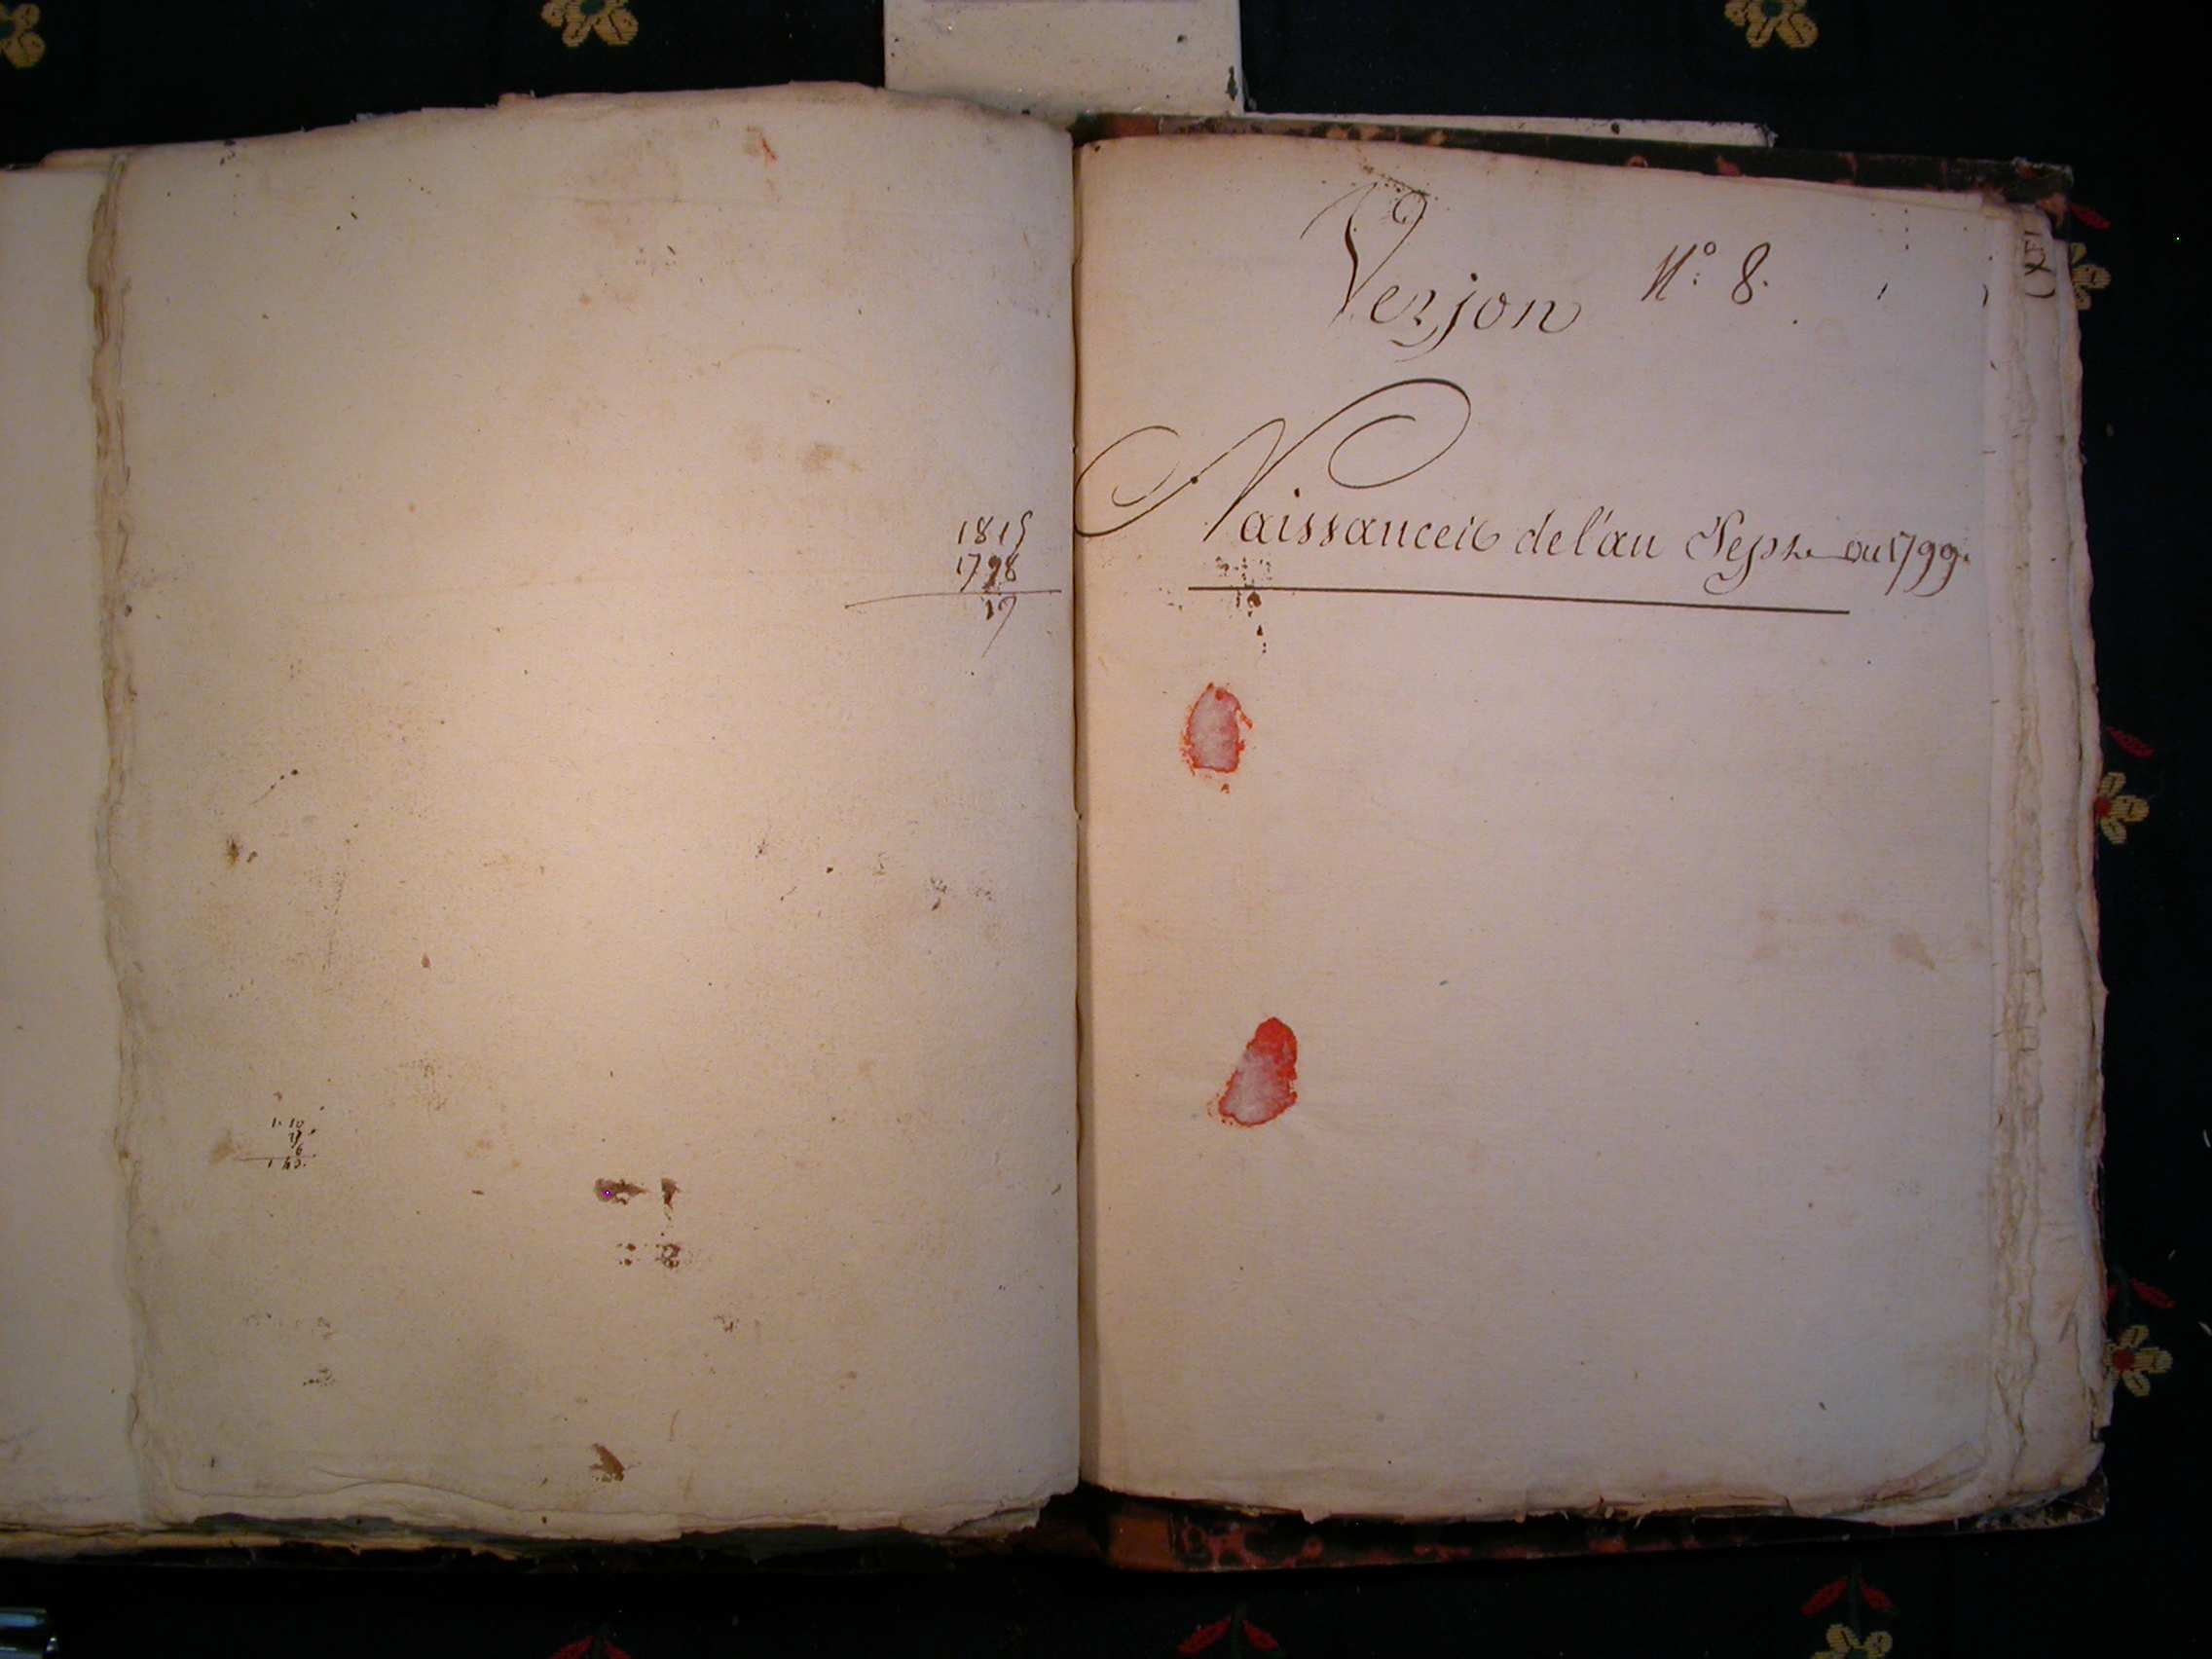 1815
1798
17
1. 10
6
Verjon N° 8.
Naissances de l'an Sept ou 1799.